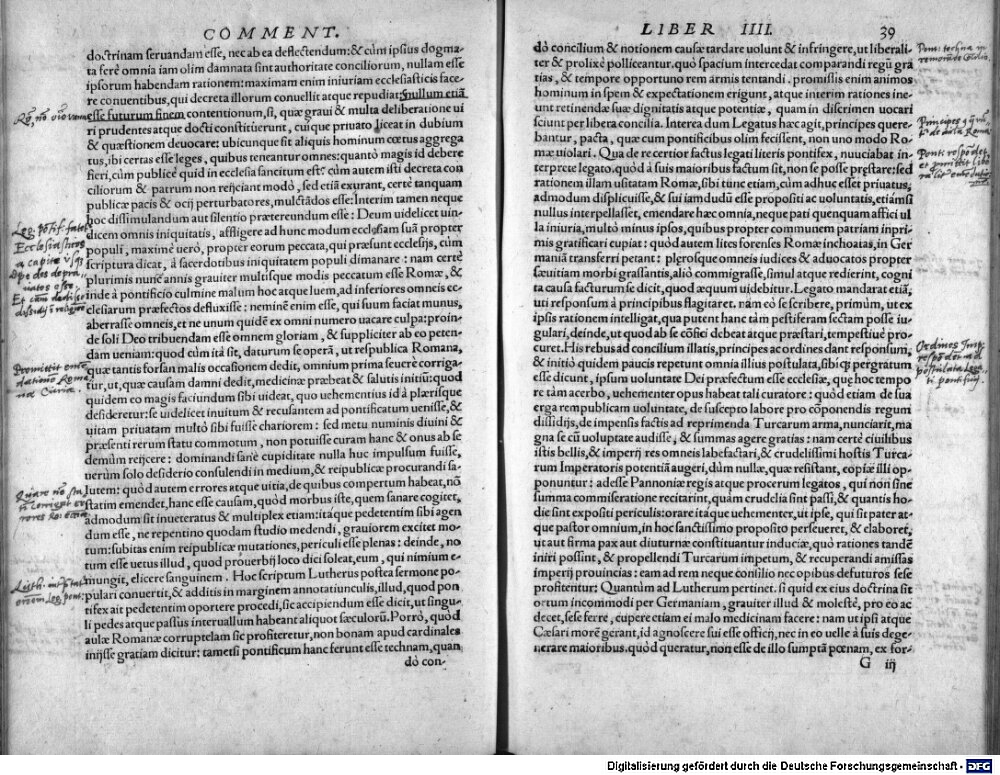 COMMENT.
doctrinam seruandam esse, nec ab ea deflectendum: & cùm ipsius dogma-
ta ferè omnia iam olim damnata sint authoritate conciliorum, nullam esse
ipsorum habendam rationem: maximam enim iniuriam ecclesiasticis face-
re conuentibus, qui decreta illorum conuellit atque repudiat: nullum etiã
esse futurum finem contentionum, si, quæ graui & multa deliberatione ui
ri prudentes atque docti constituerunt, cuique priuato liceat in dubium
& quæstionem deuocare: ubicunque sit aliquis hominum cœtus aggrega
tus, ibi certas esse leges, quibus teneantur omnes: quantò magis id debere
fieri, cùm publicè quid in ecclesia sancitum est: cùm autem isti decreta con
ciliorum & patrum non reijciant modò, sed etiã exurant, certè tanquam
publicæ pacis & ocij perturbatores, mulctãdos esse: Interim tamen neque
hoc dissimulandum aut silentio prætereundum esse: Deum uidelicet uin-
dicem omnis iniquitatis, affligere ad hunc modum ecclesiam suã propter
populi, maximè uerò, propter eorum peccata, qui præsunt ecclesijs, cùm
scriptura dicat, à sacerdotibus iniquitatem populi dimanare: nam certè
plurimis nunc annis grauiter multisque modis peccatum esse Romæ, &
inde à pontificio culmine malum hoc atque luem, ad inferiores omneis ec
clesiarum præfectos defluxisse: neminẽ enim esse, qui suum faciat munus,
aberrasse omneis, et ne unum quidẽ ex omni numero uacare culpa: proin-
de soli Deo tribuendam esse omnem gloriam, & suppliciter ab eo peten-
dam ueniam: quod cùm ità sit, daturum se operã, ut respublica Romana,
quæ tantis forsan malis occasionem dedit, omnium prima seuerè corriga-
tur, ut, quæ causam damni dedit, medicinæ præbeat & salutis initiũ: quod
quidem eo magis faciundum sibi uideat, quo uehementius id à plærisque
desideretur: se uidelicet inuitum & recusantem ad pontificatum uenisse, &
uitam priuatam multò sibi fuisse chariorem: sed metu numinis diuini &
præsenti rerum statu commotum, non potuisse curam hanc & onus ab se
demùm reijcere: dominandi sanè cupiditate nulla huc impulsum fuisse,
uerùm solo desiderio consulendi in medium, & reipublicæ procurandi sa-
lutem: quòd autem errores atque uitia, de quibus compertum habeat, nõ
statim emendet, hanc esse causam, quòd morbus iste, quem sanare cogitet,
admodum sit inueteratus & multiplex etiam: itaque pedetentim sibi agen
dum esse, ne repentino quodam studio medendi, grauiorem excitet mo-
tum: subitas enim reipublicæ mutationes, periculi esse plenas: deinde, no
tum esse uetus illud, quod prouerbij loco dici soleat, eum, qui nimium e-
mungit, elicere sanguinem. Hoc scriptum Lutherus postea sermone po-
pulari conuertit, & additis in marginem annotatiunculis, illud, quod pon
tifex ait pedetentim oportere procedi, sic accipiendum esse dicit, ut singu-
li pedes atque passus interuallum habeant aliquot sæculorũ. Porrò, quòd
aulæ Romanæ corruptelam sic profiteretur, non bonam apud cardinales
inijsse gratiam dicitur: tametsi pontificum hanc ferunt esse technam, quan
dò con-
LIBER IIII. 39
dò concilium & notionem causæ tardare uolunt & infringere, ut liberali-
ter & prolixè polliceantur. quò spacium intercedat comparandi regũ gra
tias, & tempore opportuno rem armis tentandi. promissis enim animos
hominum in spem & expectationem erigunt, atque interim rationes ine-
unt retinendæ suæ dignitatis atque potentiæ, quam in discrimen uocari
sciunt per libera concilia. Interea dum Legatus hæc agit, principes quere-
bantur, pacta, quæ cum pontificibus olim fecissent, non uno modo Ro-
mæ uiolari. Qua de re certior factus legati literis pontifex, nunciabat in-
terprete legato. quòd à suis maioribus factum sit, non se posse præstare: sed
rationem illam usitatam Romæ, sibi tũnc etiam, cùm adhuc esset priuatus,
admodum displicuisse, & sui iamdudũ esse propositi ac uoluntatis, etiamsi
nullus interpellasset, emendare hæc omnia, neque pati quenquam affici ul
la iniuria, multò minus ipsos, quibus propter communem patriam inpri-
mis gratificari cupiat: quòd autem lites forenses Romæ inchoatas, in Ger
maniã transferri petant: plerosque omneis iudices & aduocatos propter
sæuitiam morbi grassantis, aliò commigrasse, simul atque redierint, cogni
ta causa facturum se dicit, quod æquum uidebitur. Legato mandarat etiã,
uti responsum à principibus flagitaret. nam eò se scribere, primùm, ut ex
ipsis rationem intelligat, qua putent hanc tàm pestiferam sectam posse iu-
gulari, deinde, ut quod ab se cõfici debeat atque præstari, tempestiuè pro-
curet. His rebus ad concilium illatis, principes ac ordines dant responsum,
& initiò quidem paucis repetunt omnia illius postulata, sibiq; pergratum
esse dicunt, ipsum uoluntate Dei præfectum esse ecclesiæ, quę hoc tempo
re tàm acerbo, uehementer opus habeat tali curatore: quòd etiam de sua
erga rempublicam uoluntate, de suscepto labore pro cõponendis regum
dissidijs, de impensis factis ad reprimenda Turcarum arma, nunciarit, ma
gna se cũ uoluptate audisse, & summas agere gratias: nam certè ciuilibus
istis bellis, & imperij res omneis labefactari, & crudelissimi hostis Turca-
rum Imperatoris potentiã augeri, dùm nullæ, quæ resistant, copiæ illi op-
ponuntur: adesse Pannoniæ regis atque procerum legatos, qui non sinè
summa commiseratione recitarint, quàm crudelia sint passi, & quantis ho-
die sint expositi periculis: orare itaque uehementer, ut ipse, qui sit pater at-
que pastor omnium, in hoc sanctissimo proposito perseueret, & elaboret,
ut aut firma pax aut diuturnæ constituantur induciæ, quò rationes tandẽ
iniri possint, & propellendi Turcarum impetum, & recuperandi amissas
imperij prouincias: eam ad rem neque consilio nec opibus defuturos sese
profitentur: Quantùm ad Lutherum pertinet. si quid ex eius doctrina sit
ortum incommodi per Germaniam, grauiter illud & molestè, pro eo ac
decet, sese ferre, cupere etiam ei malo medicinam facere: nam ut ipsi atque
Cæsari morẽ gerant, id agnoscere sui esse officij, nec in eo uelle à suis dege-
nerare maioribus. quòd queratur, non esse de illo sumptã pœnam, ex for-
G iij
Digitalisierung gefördert durch die Deutsche Forschungsgemeinschaft - DFG